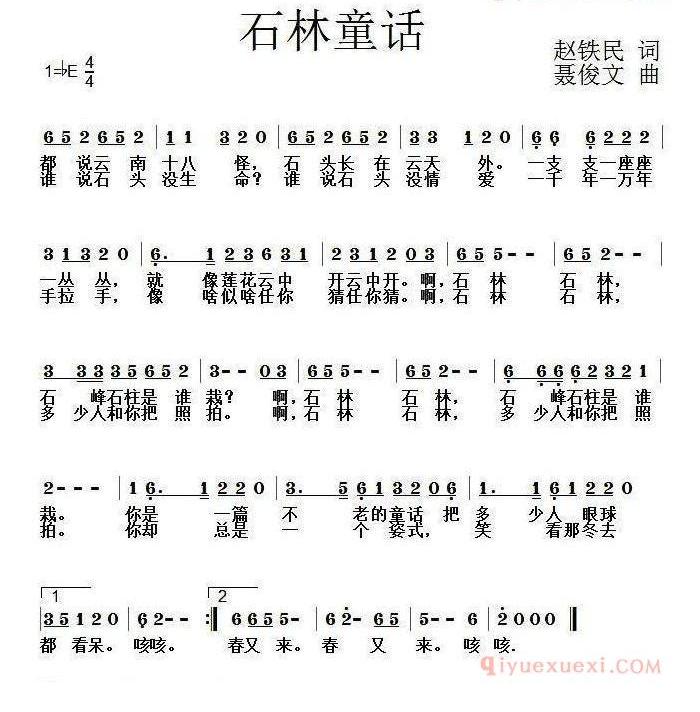 石林童话
1=♭E 4/4
赵铁民 词
聂俊文 曲
6 5 2 6 5 2 | 1 1 3 2 0 | 6 5 2 6 5 2 | 3 3 1 2 0 | 6 6 6 2 2 1 2 |
都说云南十八怪，石头长在云天外。一支支一座座
谁说石头没生命？谁说石头没情爱一千年一万年
3 1 3 2 0 | 6. 1 2 3 6 3 1 | 2 3 1 2 0 3 | 6 5 5 - - | 6 5 2 - - |
一丛丛，就像莲花云中开云中开。啊，石林石林，
手拉手，像啥似啥任你猜任你猜。啊，石林石林，
3 3 3 3 5 6 5 2 | 3 - - 0 3 | 6 5 5 - - | 6 5 2 - - | 6 6 6 2 3 2 1 |
石峰石柱是谁栽？啊，石林石林，石峰石柱是谁
多少人和你把照拍。啊，石林石林，多少人和你把照
2 - - - | 1 6. 1 2 2 0 | 3. 5 6 1 3 2 0 6 | 1. 1 6 1 2 2 0 |
栽。你是一篇不老的童话把多少人眼球
拍。你却总是一个姿式，笑看那冬去
1 2
3 5 1 2 0 | 6 2 - - :| 6 6 5 5 - - | 6 2 - 6 5 | 5 - - 6 | 2 0 0 0 ‖
都看呆。咳咳。春又来。春又来。咳咳.
qiyuexuexi.com